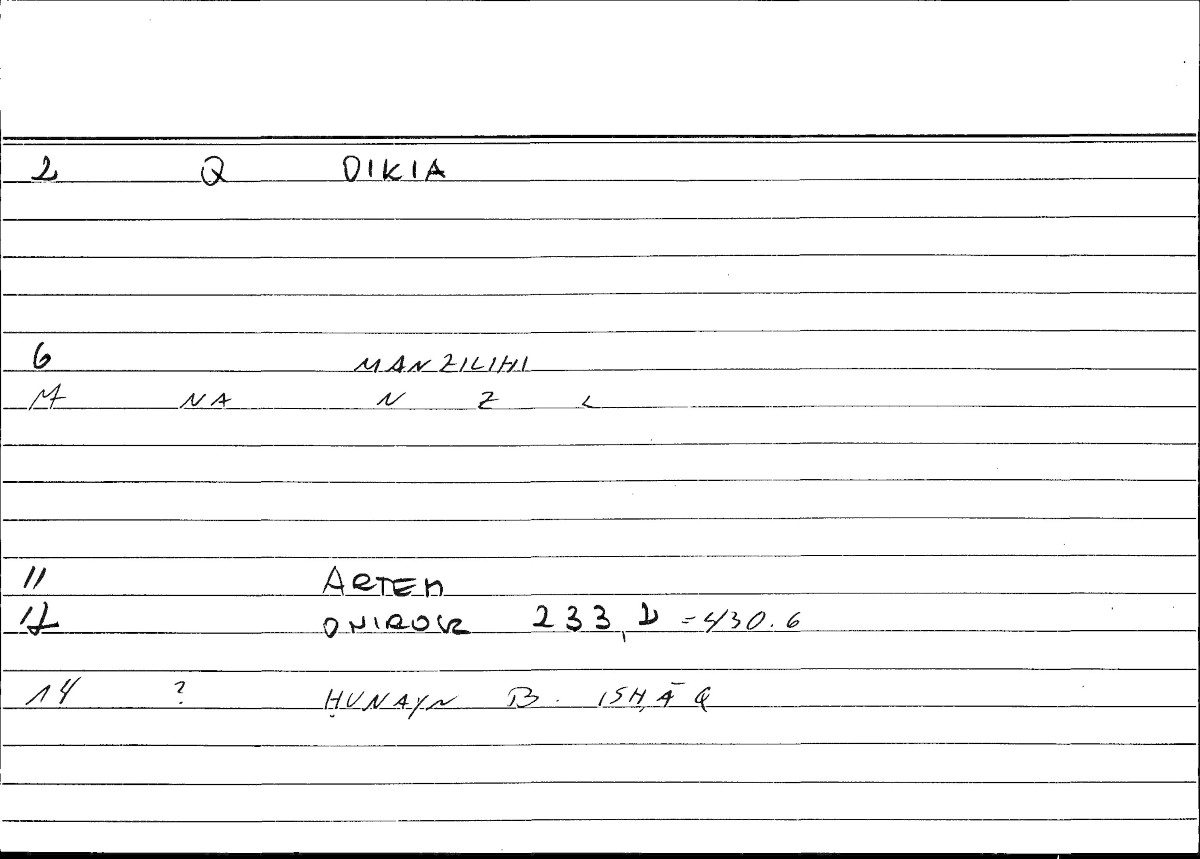 2 Q DIKIA
6 MANZILIHI
M NA N Z L
11 ARTEM
12 ONIROKR 233, 2 = 430.6
14 ? ḤUNAYN B. ISḤĀQ